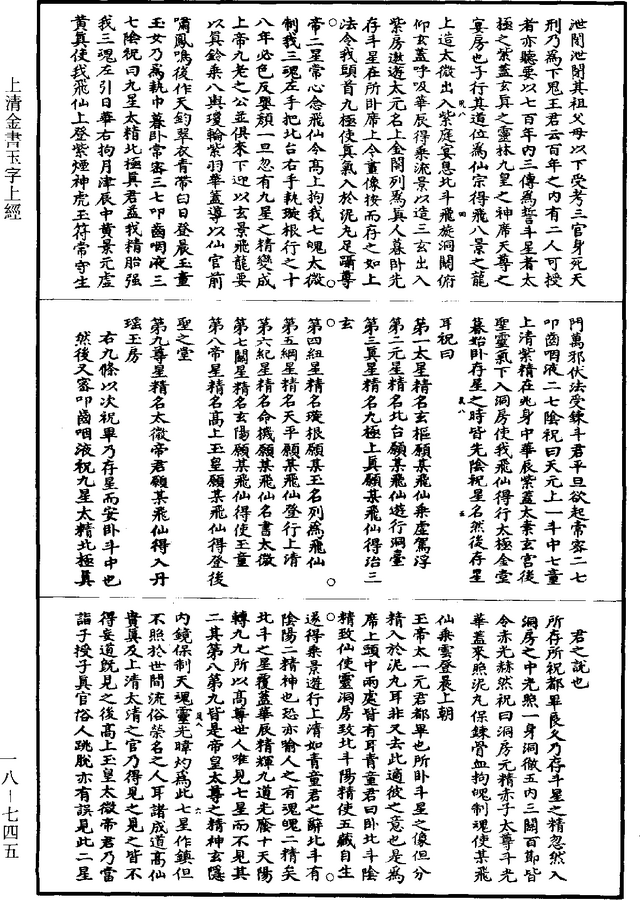 上清金書玉字上經
一八-七四五
泄閉泄閉其祖父母以下受考三官身死天
刑乃為下鬼王君云百年之內有二人可授
者亦聽要以七百年內三傳為誓斗星者太
極之紫蓋玄真之靈林九皇之神席天尊之
宴房也子行其道位為仙宗得飛八景之龍
上道太微出入紫庭宴息北斗飛旋洞闕俯
仰玄蓋呼吸華辰得乘流景以造三玄出入
紫房遨遊太元名上金閣列為真人暮卧先
存斗星在所卧席上令畫像按而存之如上
法令我頭首九極使真氣入於泥丸足躡尊
帝二星常心念飛仙今高上拘我七魄太微
制我三魂左手把北台右手執璇根行之十
八年必色反嬰顏一旦忽有九星之精變成
上帝九老之公並俱來下迎以玄景飛龍要
以真鈴乘八輿瓊輪紫羽華蓋導以仙官前
嘯鳳鳴後作天鈞翠衣青帶白日登晨玉童
玉女乃為執巾暮卧常密三七叩齒咽液三
七陰祝曰九星太精北極真君蓋我精胎強
我三魂左引日華右拘月津辰中黃景元虛
黃真使我飛仙上登紫煙神虎玉符常守生
門萬邪伏法受鍊斗君平旦欲起常密二七
叩齒咽液二七陰祝曰天元上一斗中七童
上清紫精在兆身中華辰紫蓋太素玄宮後
聖靈氣下入洞房使我飛仙得行太極金堂
暮始卧存星之時皆先陰祝星名然後存星
耳祝曰
第一太星精名玄樞願某飛仙乘虛駕浮
第二元星精名北台願某飛仙遊行洞臺
第三真星精名九極上真願某飛仙得治三
玄
第四紐星精名璇根願某玉名列為飛仙
第五綱星精名天平願某飛仙登行上清
第六紀星精名命機願某飛仙名書太微
第七關星精名玄陽願某飛仙得使玉童
第八帝星精名高上玉皇願某飛仙得登後
聖之堂
第九尊星精名太微帝君願某飛仙得入丹
瑶玉房
右九條以次祝畢乃存星而安卧斗中也
然後又密叩齒咽液祝九星太精北極真
君之說也
所存所祝都畢良久乃存斗星之精忽然入
洞房之中光照一身洞徹五內三關百節皆
令赤光赫然祝曰洞房元精赤子太尊斗光
華蓋來照泥丸保鍊骨血拘魄制魂使某飛
仙乘雲登晨上朝
玉帝太一元君都畢也所卧斗星之像但分
精入於泥丸耳非又去此適彼之意也是為
席上頭中兩處皆有耳青童君曰卧北斗陰
精致仙使靈洞房致北斗陽精使五藏自生
遂得乘景遊行上清如青童君之辭北斗有
陰陽二精神也恐亦喻人之有魂魄二精矣
北斗之星覆蓋華辰精輝九道光騰十天陽
轉九九所以高尊世人唯見七星而不見其
二其第八第九皆是帝皇太尊之精神玄隱
內鏡保制天魂靈光暐灼為此七星作鎮但
不照於世間流俗榮名之人耳諸成道高仙
貴真及上清太清之官乃得見之見之皆不
得妄道說見之後高上玉皇太微帝君乃當
詣子授子真官俗人跳脫亦有誤見此二星